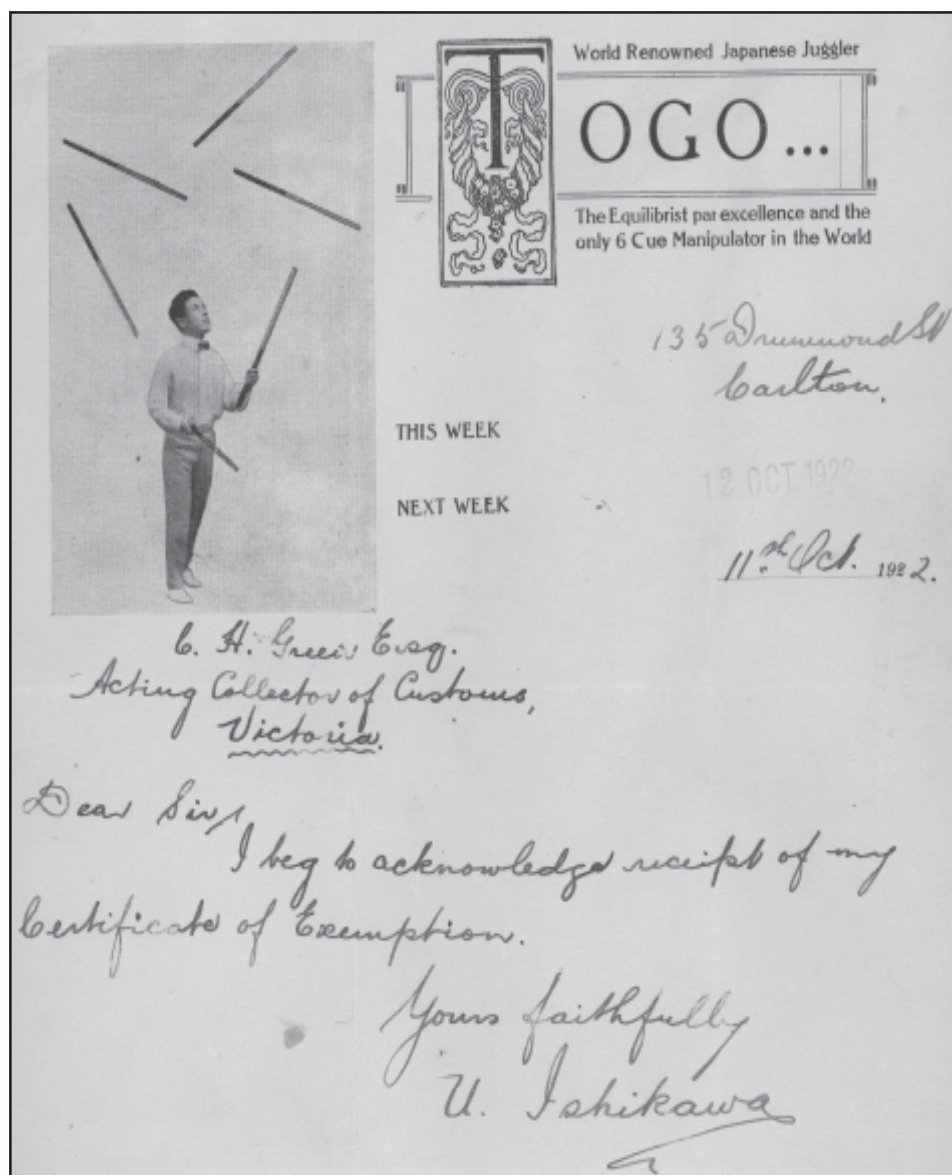 World Renowned Japanese Juggler
TOGO...
The Equilibrist par excellence and the
only 6 Cue Manipulator in the World
135 Drummond St
Carlton,
THIS WEEK
12 OCT 1922
NEXT WEEK
11th Oct. 1922.
C. H. Esq.
Acting Collector of Customs,
Victoria.
Dear Sir,
I beg to acknowledge receipt of my
Certificate of Exemption.
Yours faithfully
U. Ishikawa